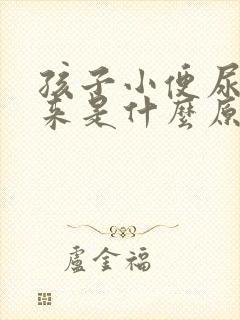 孩子小便尿
来是什麼原
盧金福